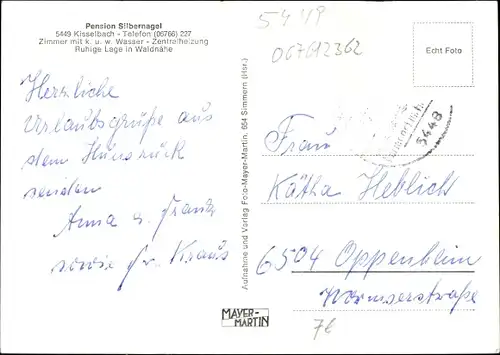 Pension Silbernagel
5449 Kisselbach - Telefon (06766) 227
Zimmer mit k. u. w. Wasser - Zentralheizung
Ruhige Lage in Waldnähe
Herzliche
Urlaubsgrüße aus
dem Hunsrück
senden
Anna u. Franz
sowie Fr. Kraus
Aufnahme und Verlag Foto-Mayer-Martin, 654 Simmern (Hsr.)
MAYER-
MARTIN
5449
067612362
Echt Foto
5448
Frau
Kätha Heblich
6504 Oppenheim
Wormserstraße
7€